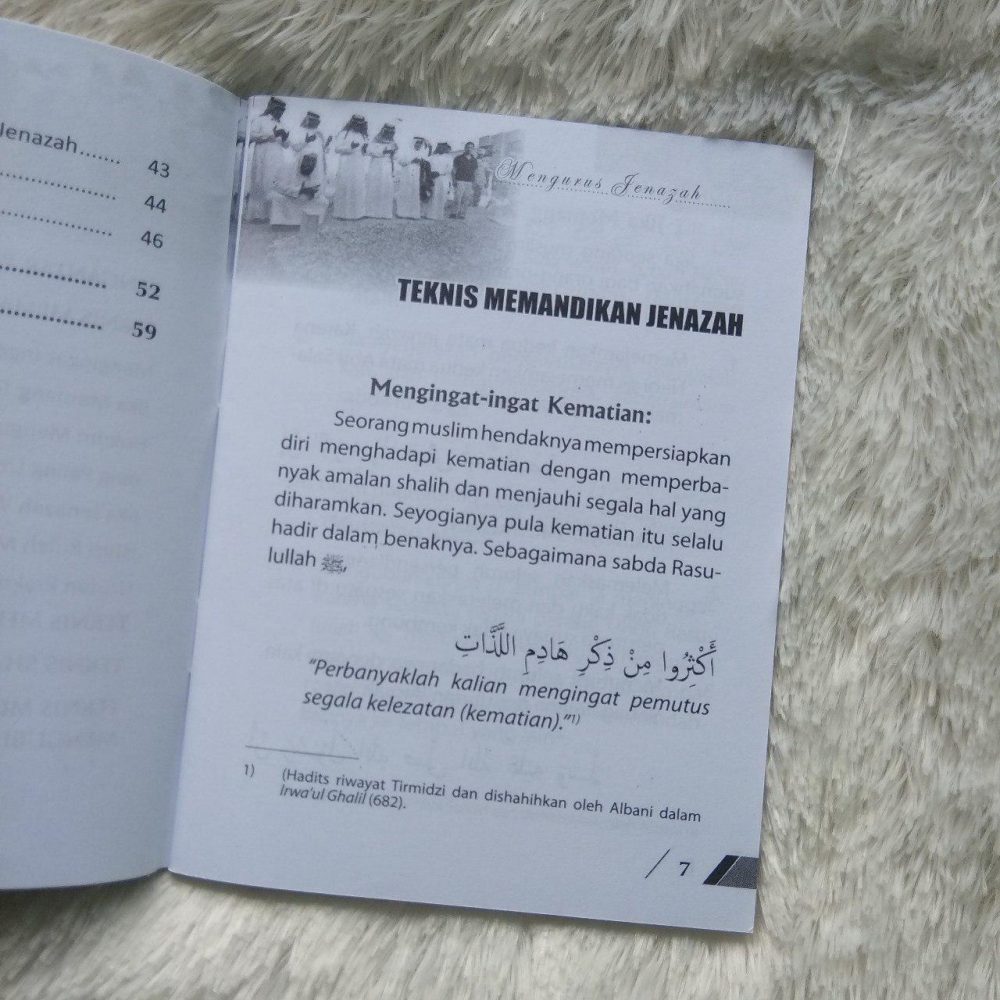 Jenazah....... 43
44
46
52
59
Mengurus Jenazah
TEKNIS MEMANDIKAN JENAZAH
Mengingat-ingat Kematian:
Seorang muslim hendaknya mempersiapkan
diri menghadapi kematian dengan memperba-
nyak amalan shalih dan menjauhi segala hal yang
diharamkan. Seyogianya pula kematian itu selalu
hadir dalam benaknya. Sebagaimana sabda Rasu-
lullah ﷺ,
أَكْثِرُوا مِنْ ذِكْرِ هَادِمِ اللَّذَّاتِ
“Perbanyaklah kalian mengingat pemutus
segala kelezatan (kematian).”1)
1) (Hadits riwayat Tirmidzi dan dishahihkan oleh Albani dalam
Irwa'ul Ghalil (682).
7